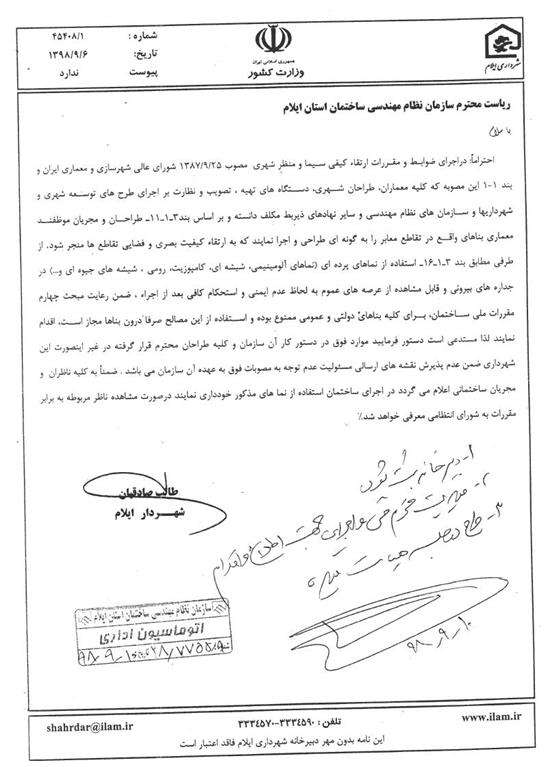 شماره : ۴۵۴۰۸/۱
تاریخ: ۱۳۹۸/۹/۶
پیوست ندارد
جمهوری اسلامی ایران
وزارت کشور
شهرداری ایلام
ریاست محترم سازمان نظام مهندسی ساختمان استان ایلام
با سلام
احتراماً: دراجرای ضوابط و مقررات ارتقاء کیفی سیما و منظر شهری مصوب ۱۳۸۷/۹/۲۵ شورای عالی شهرسازی و معماری ایران و
بند ۱-۱ این مصوبه که کلیه معماران، طراحان شهری، دستگاه های تهیه ، تصویب و نظارت بر اجرای طرح های توسعه شهری و
شهرداریها و سازمان های نظام مهندسی و سایر نهادهای ذیربط مکلف دانسته و بر اساس بند۳-۱-۱۱- طراحان و مجریان موظفند
معماری بناهای واقع در تقاطع معابر را به گونه ای طراحی و اجرا نمایند که به ارتقاء کیفیت بصری و فضایی تقاطع ها منجر شود. از
طرفی مطابق بند ۳-۱-۱۶- استفاده از نماهای پرده ای (نماهای آلومینیمی، شیشه ای، کامپوزیت، رومی ، شیشه های جیوه ای و...) در
جداره های بیرونی و قابل مشاهده از عرصه های عموم به لحاظ عدم ایمنی و استحکام کافی بعد از اجراء ، ضمن رعایت مبحث چهارم
مقررات ملی ساختمان، برای کلیه بناهای دولتی و عمومی ممنوع بوده و استفاده از این مصالح صرفا درون بناها مجاز است، اقدام
نمایند لذا مستدعی است دستور فرمایید موارد فوق در دستور کار آن سازمان و کلیه طراحان محترم قرار گرفته در غیر اینصورت این
شهرداری ضمن عدم پذیرش نقشه های ارسالی مسئولیت عدم توجه به مصوبات فوق به عهده آن سازمان می باشد . ضمناً به کلیه ناظران و
مجریان ساختمانی اعلام می گردد در اجرای ساختمان استفاده از نما های مذکور خودداری نمایند درصورت مشاهده ناظر مربوطه به برابر
مقررات به شورای انتظامی معرفی خواهد شد.٪
طالب صادقیان
شهردار ایلام
۱- دبیرخانه ثبت شود
۲- مدیریت محترم فنی و اجرایی جهت اطلاع و اقدام
۳- طرح در جلسه هیات مدیره
۹۸-۹-۱۰
سازمان نظام مهندسی ساختمان استان ایلام
اتوماسیون اداری
تلفن : ۳۳۳۴۵۹۰-۳۳۳۴۵۷۰
www.ilam.ir
shahrdar@ilam.ir
این نامه بدون مهر دبیرخانه شهرداری ایلام فاقد اعتبار است